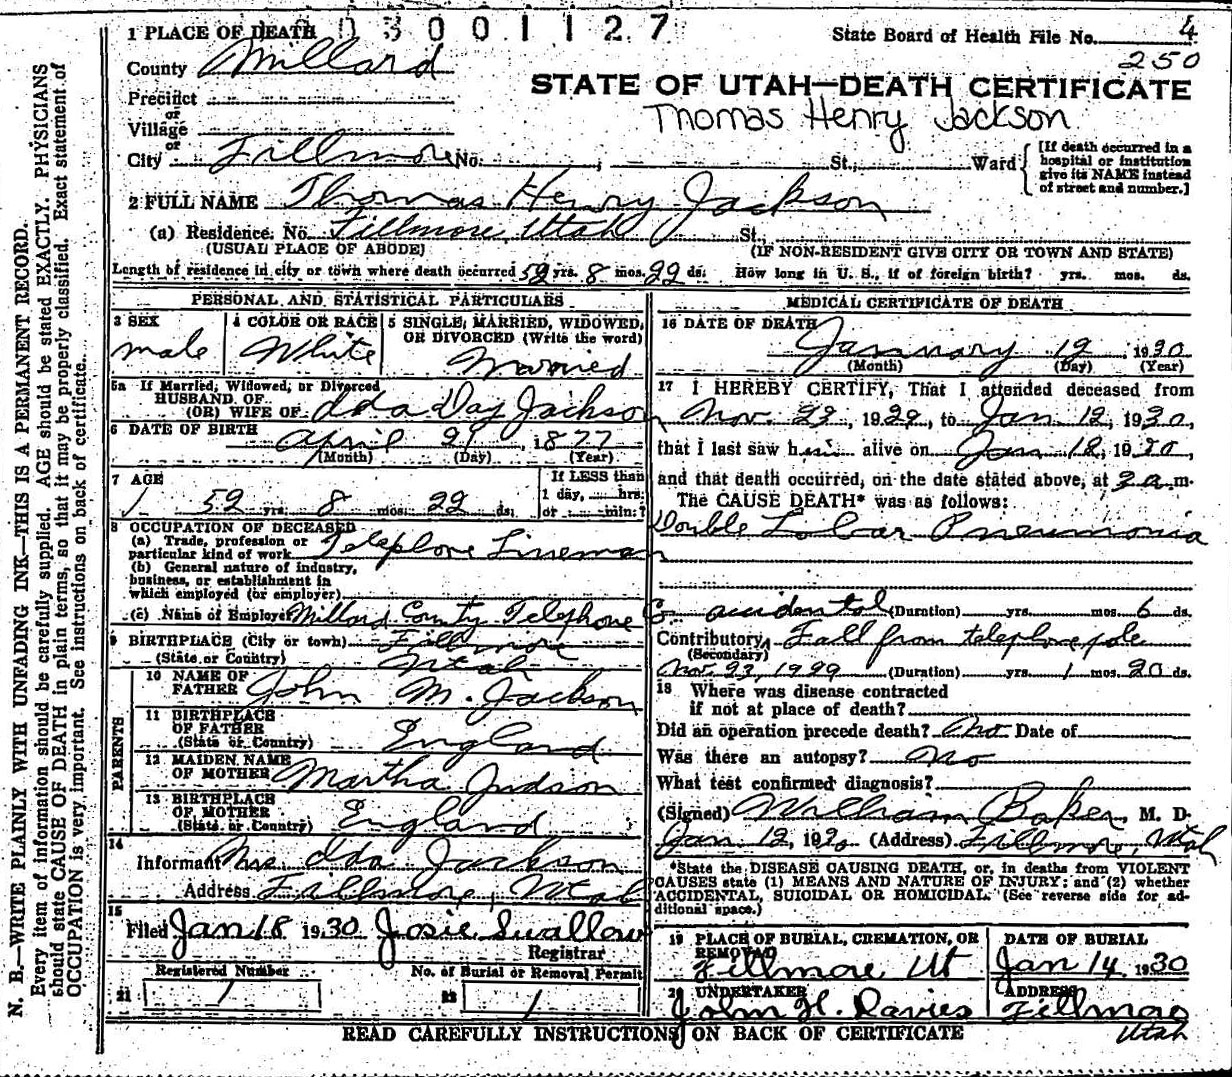 N. B.—WRITE PLAINLY WITH UNFADING INK—THIS IS A PERMANENT RECORD.
Every item of information should be carefully supplied. AGE should be stated EXACTLY. PHYSICIANS
should state CAUSE OF DEATH in plain terms, so that it may be properly classified. Exact statement of
OCCUPATION is very important. See instructions on back of certificate.
1 PLACE OF DEATH
0 3 0 0 1 1 2 7
State Board of Health File No. 4
250
County Millard
STATE OF UTAH—DEATH CERTIFICATE
Thomas Henry Jackson
Precinct
or
Village
or
City Fillmore No. , St., Ward
[If death occurred in a
hospital or institution
give its NAME instead
of street and number.]
2 FULL NAME Thomas Henry Jackson
(a) Residence. No. Fillmore, Utah St.
(USUAL PLACE OF ABODE) (IF NON-RESIDENT GIVE CITY OR TOWN AND STATE)
Length of residence in city or town where death occurred 52 yrs. 8 mos. 22 ds. How long in U. S., if of foreign birth? yrs. mos. ds.
PERSONAL AND STATISTICAL PARTICULARS
3 SEX
male
4 COLOR OR RACE
White
5 SINGLE, MARRIED, WIDOWED,
OR DIVORCED (Write the word)
Married
5a If Married, Widowed, or Divorced
HUSBAND OF
(OR) WIFE OF Ida Day Jackson
6 DATE OF BIRTH
April 21 1877
(Month) (Day) (Year)
7 AGE
52 yrs. 8 mos. 22 ds.
If LESS than
1 day, hrs.
or min.?
8 OCCUPATION OF DECEASED
(a) Trade, profession or
particular kind of work Telephone Lineman
(b) General nature of industry,
business, or establishment in
which employed (or employer)
(c) Name of Employer Millard County Telephone Co
9 BIRTHPLACE (City or town) Fillmore
(State or Country) Utah
PARENTS
10 NAME OF
FATHER John M. Jackson
11 BIRTHPLACE
OF FATHER
(State or Country) England
12 MAIDEN NAME
OF MOTHER Martha Judson
13 BIRTHPLACE
OF MOTHER
(State or Country) England
14
Informant Mrs Ida Jackson
Address Fillmore, Utah
15
Filed Jan 18 1930 Josie Swallow
Registrar
Registered Number
21 1
No. of Burial or Removal Permit
22 1
MEDICAL CERTIFICATE OF DEATH
16 DATE OF DEATH
January 12, 1930
(Month) (Day) (Year)
17 I HEREBY CERTIFY, That I attended deceased from
Nov. 23, 1929, to Jan 12, 1930,
that I last saw him alive on Jan 1930,
and that death occurred, on the date stated above, at a m.
The CAUSE DEATH* was as follows:
Double Lobar Pneumonia
accidental (Duration) yrs. mos. 6 ds.
Contributory Fall from telephone pole
(Secondary)
Nov. 23, 1929 (Duration) yrs. 1 mos. 20 ds.
18 Where was disease contracted
if not at place of death?
Did an operation precede death? No Date of
Was there an autopsy? No
What test confirmed diagnosis?
(Signed) William Baker, M. D.
Jan 12, 1930 (Address) Fillmore, Utah
*State the DISEASE CAUSING DEATH, or, in deaths from VIOLENT
CAUSES state (1) MEANS AND NATURE OF INJURY; and (2) whether
ACCIDENTAL, SUICIDAL OR HOMICIDAL. (See reverse side for ad-
ditional space.)
19 PLACE OF BURIAL, CREMATION, OR
REMOVAL
Fillmore Ut
DATE OF BURIAL
Jan 14 1930
20 UNDERTAKER
John H. Davies
ADDRESS
Fillmore
Utah
READ CAREFULLY INSTRUCTIONS ON BACK OF CERTIFICATE